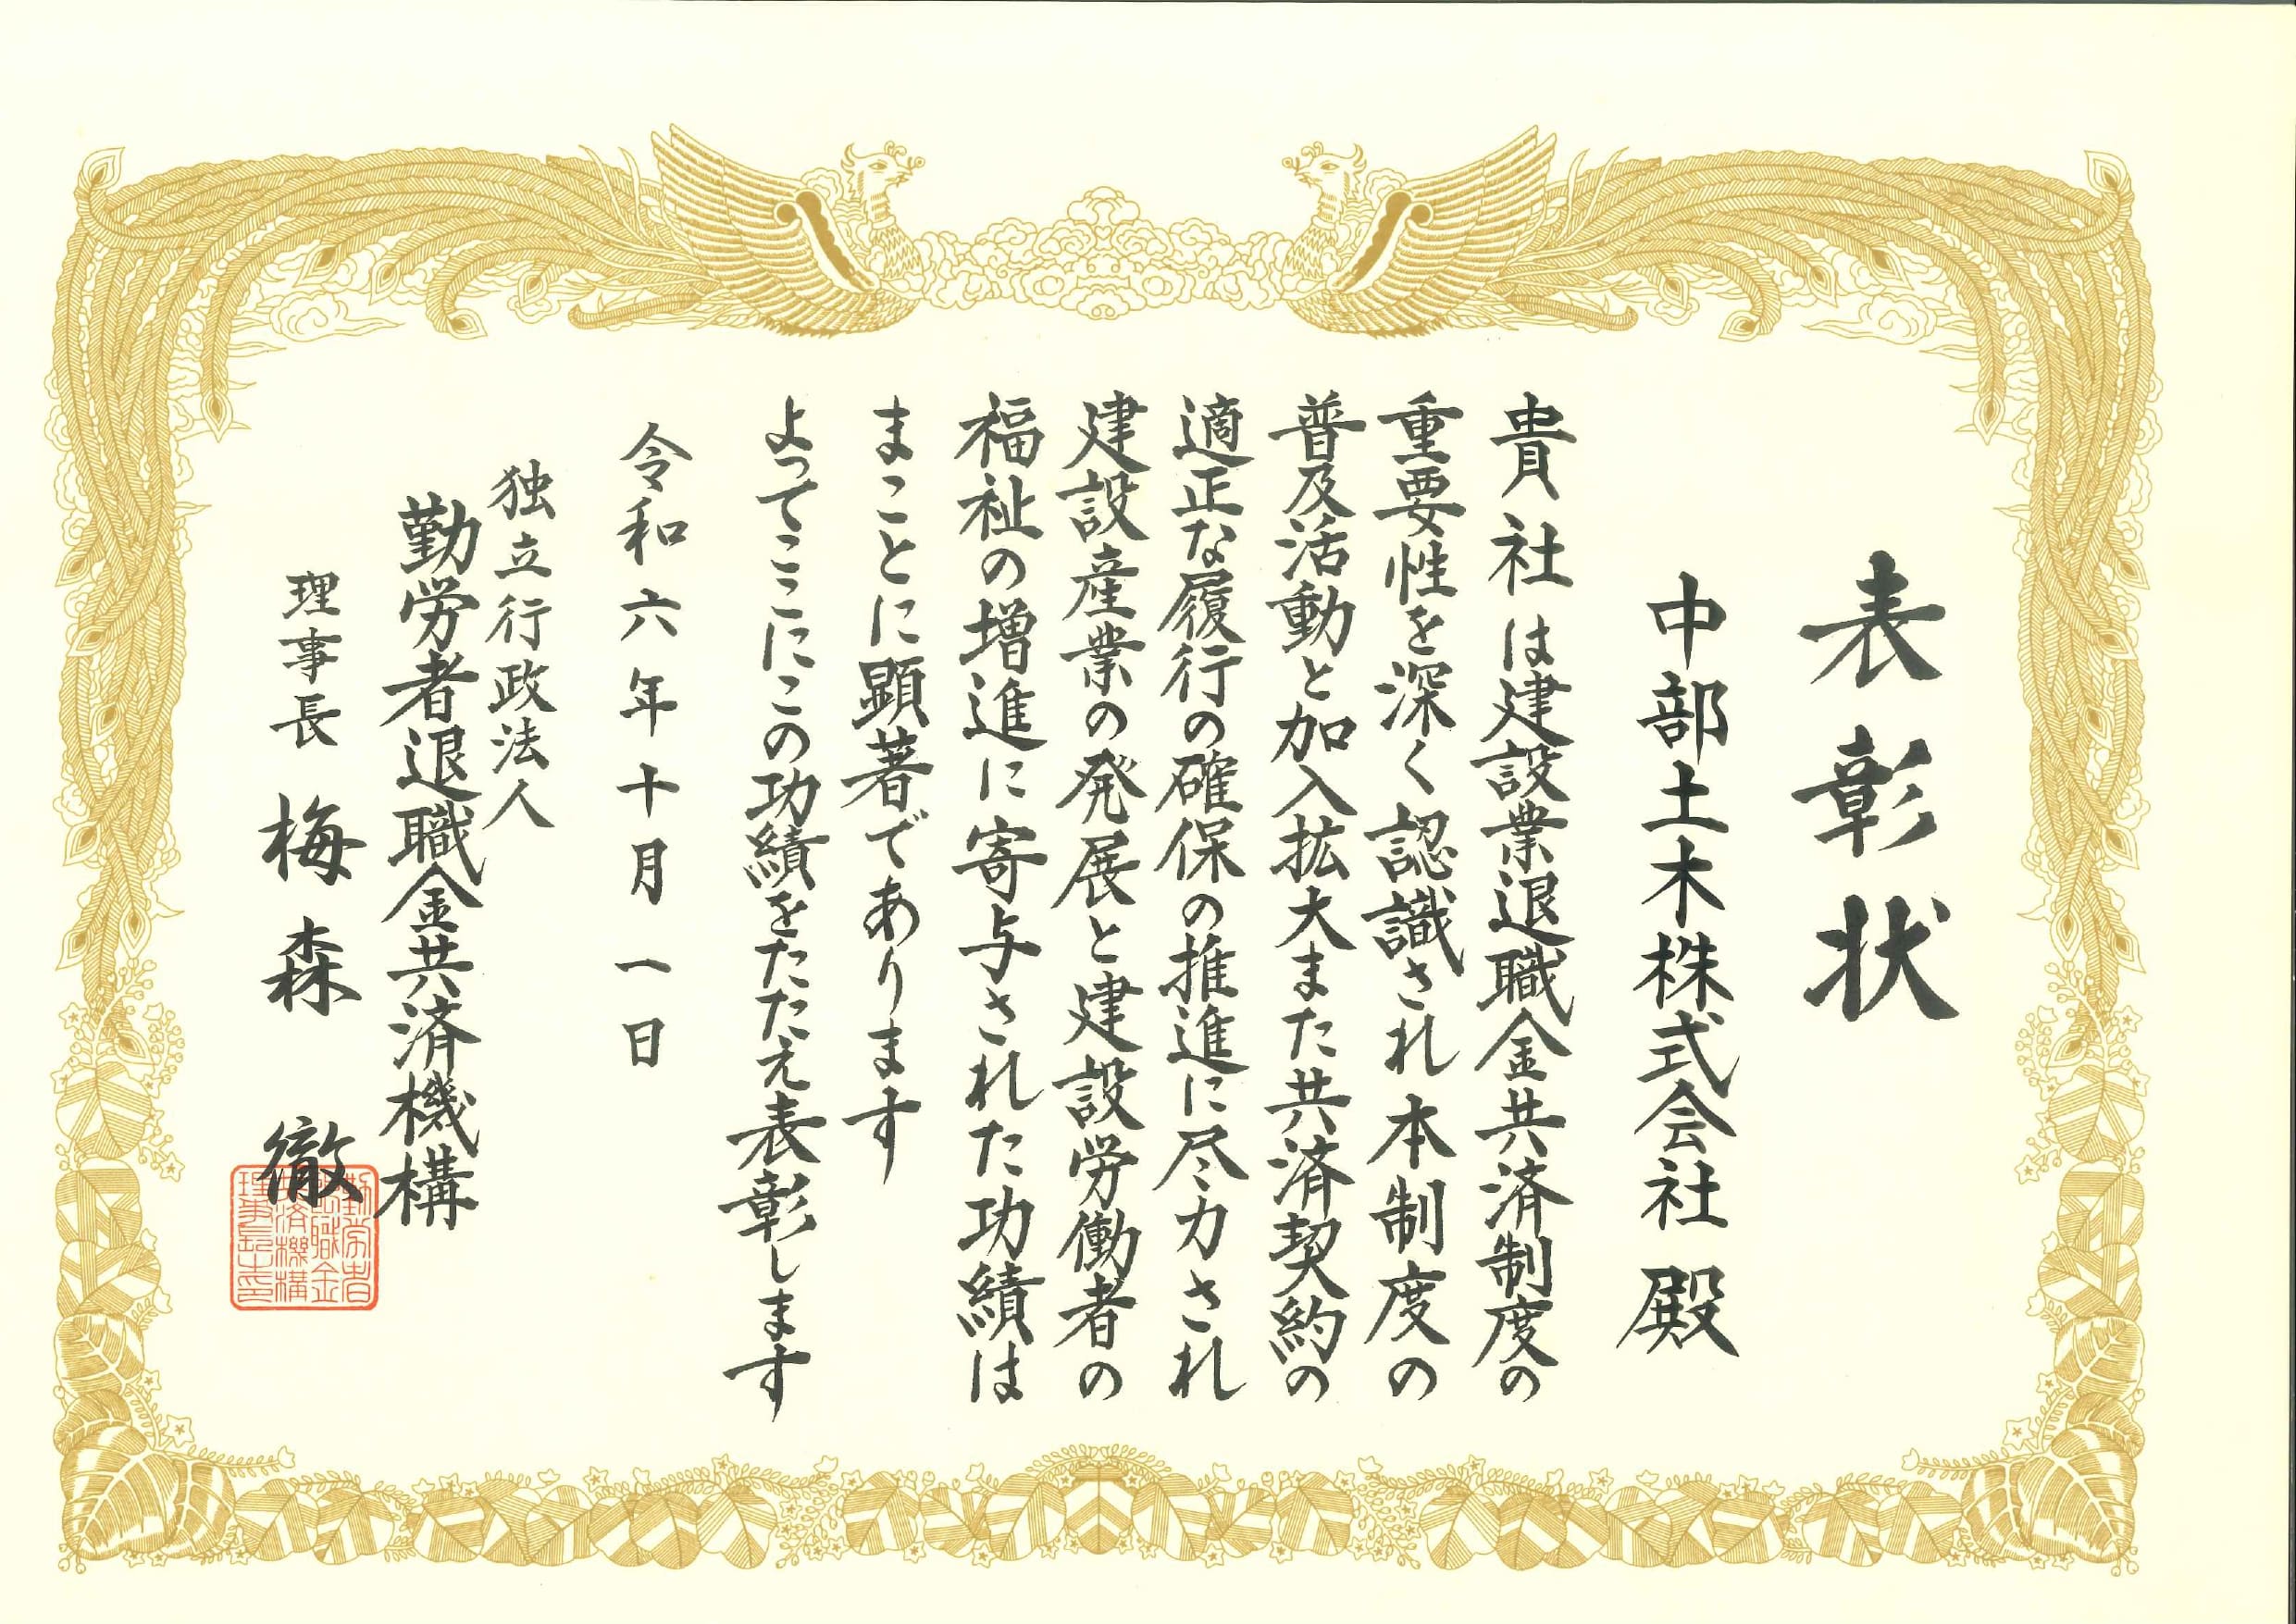 表彰状
中部土木株式会社 殿
貴社は建設業退職金共済制度の
重要性を深く認識され本制度の
普及活動と加入拡大また共済契約の
適正な履行の確保の推進に尽力され
建設産業の発展と建設労働者の
福祉の増進に寄与された功績は
まことに顕著であります
よってここにこの功績をたたえ表彰します
令和六年十月一日
独立行政法人
勤労者退職金共済機構
理事長 梅森 徹
勤労者
退職金
共済機構
理事長之印